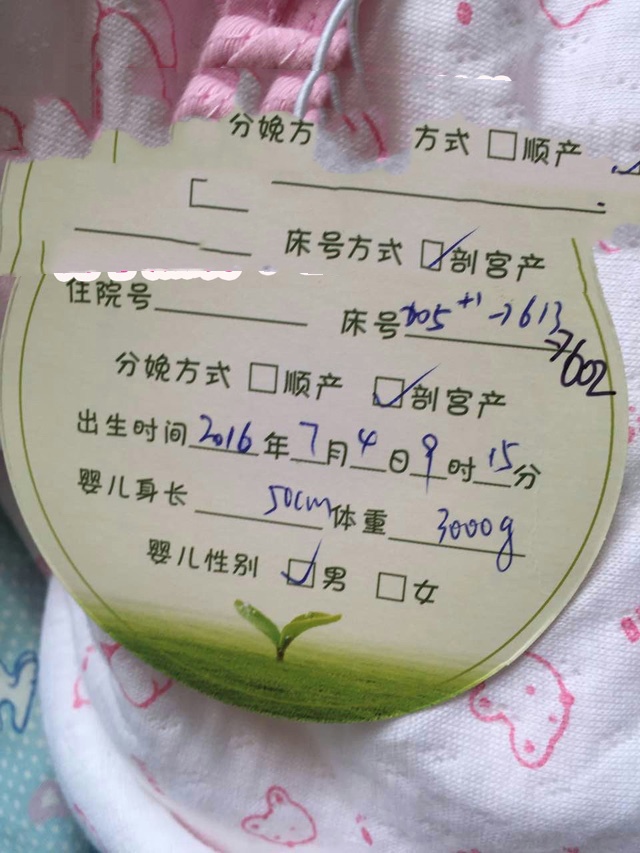 分娩方 方式 □顺产
床号方式 ☑剖宫产
住院号 床号 705+1→613
→602
分娩方式 □顺产 ☑剖宫产
出生时间 2016 年 7 月 4 日 9 时 15 分
婴儿身长 50cm 体重 3000g
婴儿性别 ☑男 □女